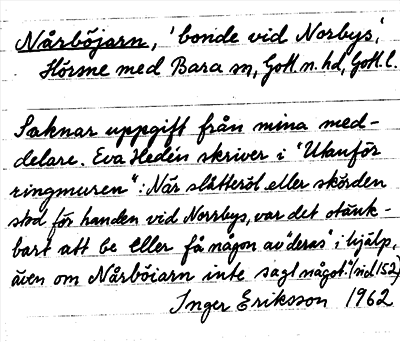 Nårböjarn, 'bonde vid Norbys,'
Hörsne med Bara sn, Gotl. n. hd, Gotl. l.
Saknar uppgift från mina med-
delare. Eva Hedén skriver i "Utanför
ringmuren": När slåtteröl eller skörden
stod för handen vid Norrbys, var det otänk-
bart att be eller få någon av "deras" i hjälp,
även om Nårböiarn inte sagt något." (sid 152)
Inger Eriksson 1962